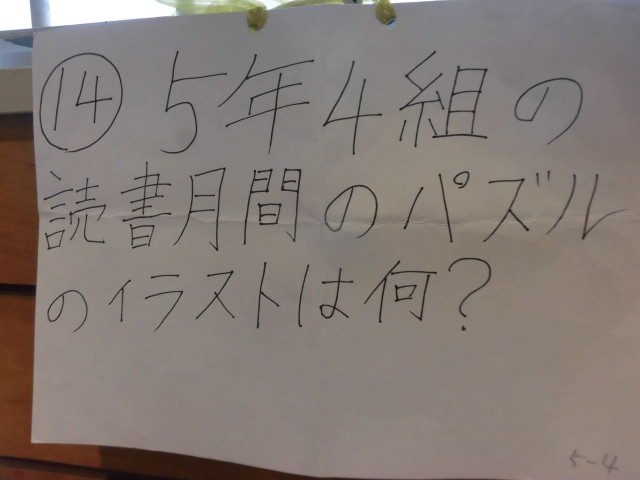 ⑭ 5年4組の
読書月間のパズル
のイラストは何?
5-4